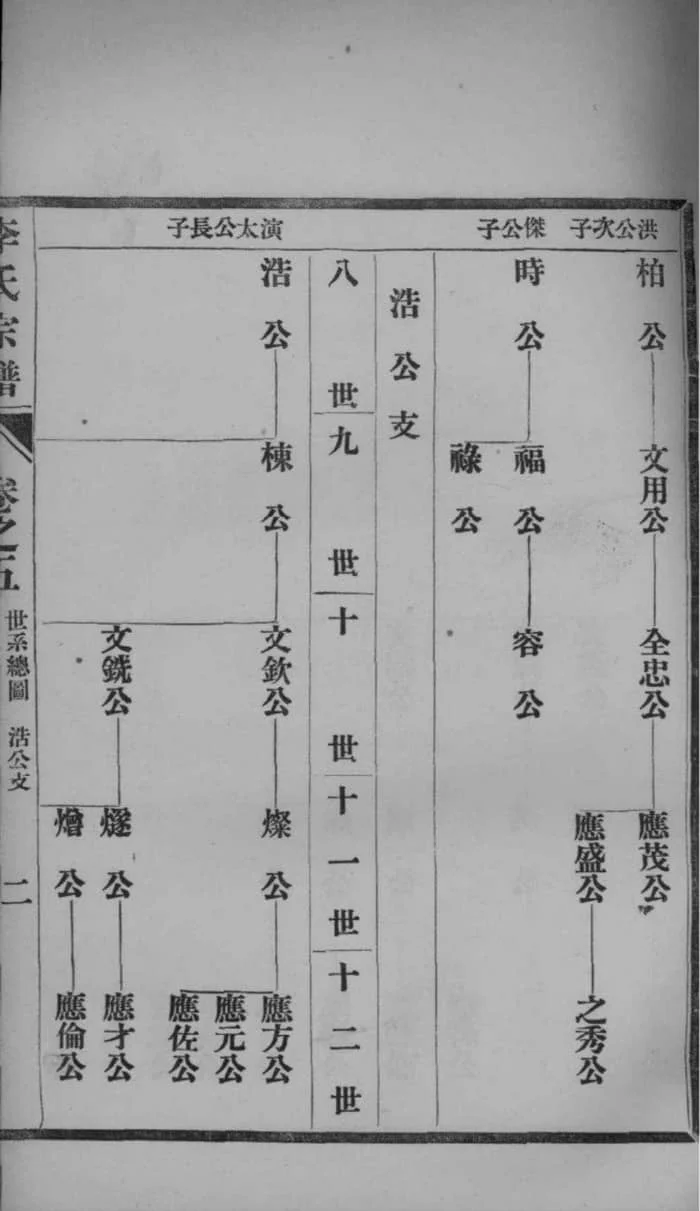 洪公次子
柏公
文用公
全忠公
應茂公
應盛公
之秀公
傑公子
時公
福公
祿公
容公
浩公支
八世
九世
十世
十一世
十二世
演太公長子
浩公
棟公
文欽公
文銑公
燦公
燧公
燴公
應方公
應元公
應佐公
應才公
應倫公
李氏宗譜
卷之五
世系總圖 浩公支
二